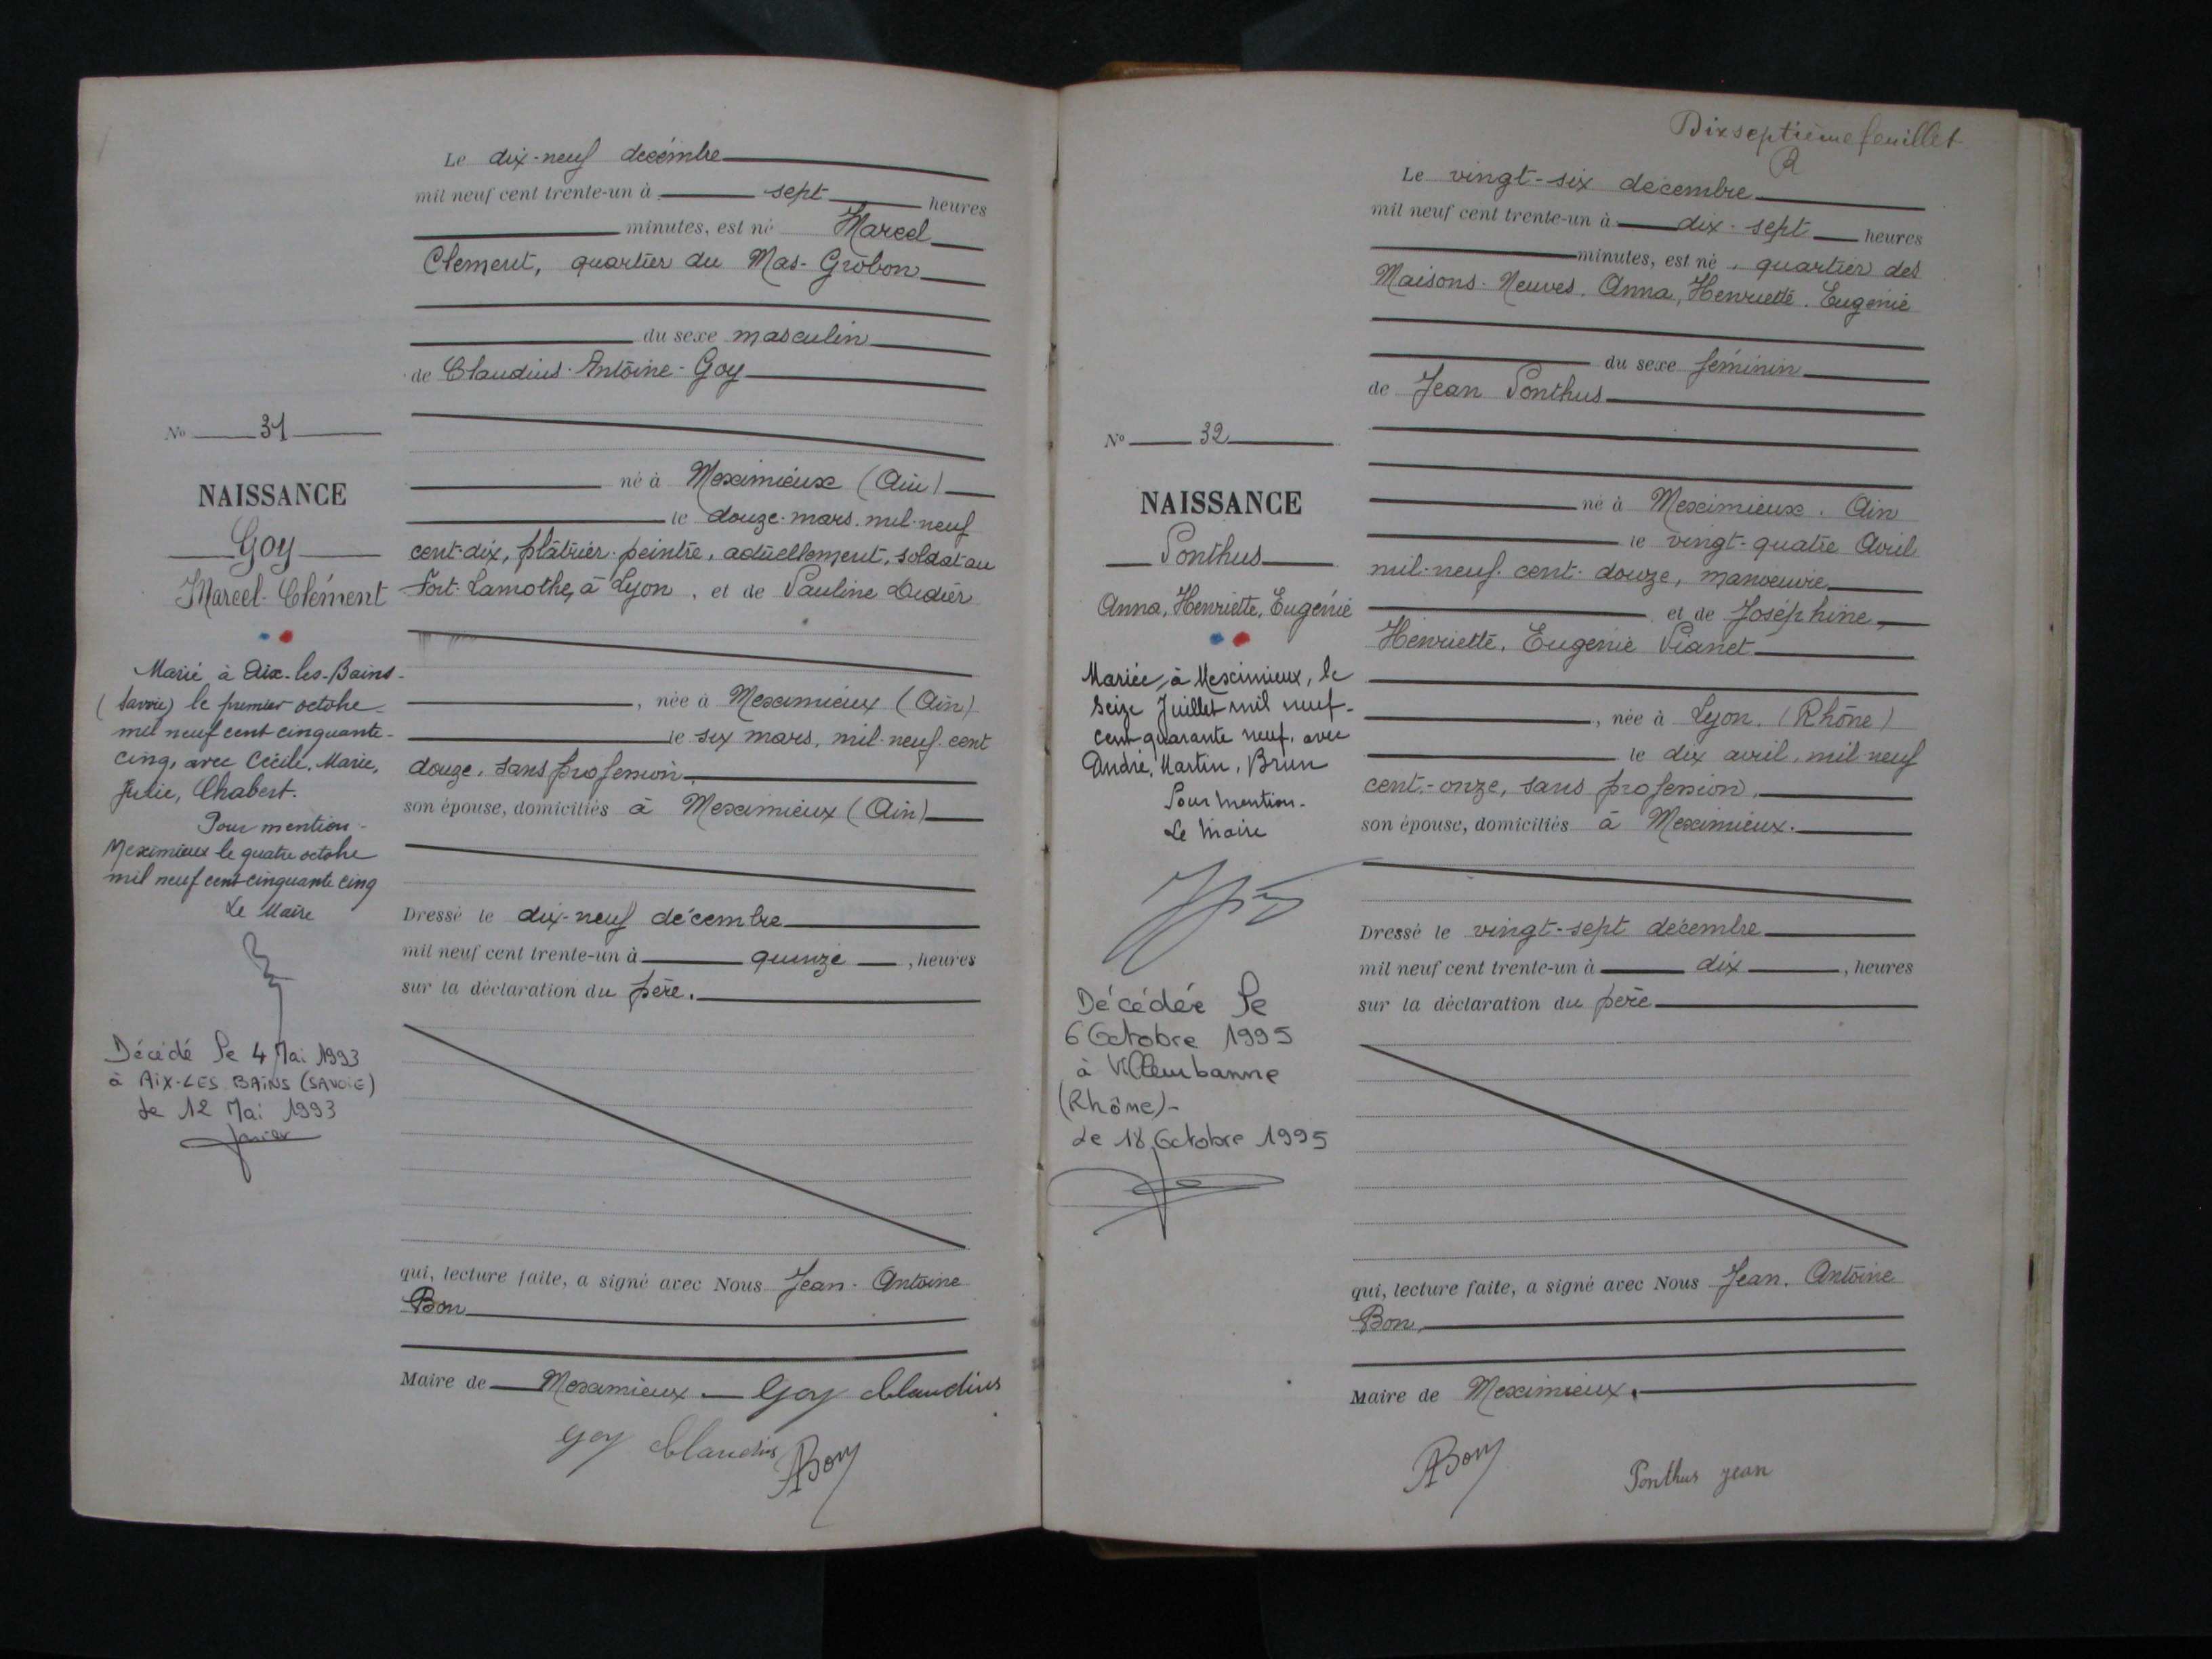 Le dix-neuf decémbre
mil neuf cent trente-un à sept heures
minutes, est né Marcel
Clement, quartier du Mas-Grobon
du sexe masculin
de Claudius-Antoine-Goy
No 31
né à Meximieux (Ain)
le douze mars mil-neuf
NAISSANCE
Goy
cent-dix, plâtrier-peintre, actuellement, soldat au
Marcel-Clément
Fort-Lamothe, à Lyon, et de Pauline Didier
Marié à Aix-les-Bains-
(Savoie) le premier octobre
mil neuf cent cinquante-
cinq, avec Cécile, Marie,
Julie, Chabert.
Pour mention
Meximieux le quatre octobre
mil neuf cent cinquante cinq
Le Maire
Décédé le 4 Mai 1993
à AIX-LES BAINS (SAVOIE)
Le 12 Mai 1993
, née à Meximieux (Ain)
le six mars, mil-neuf cent
douze, sans profession
son épouse, domiciliés à Meximieux (Ain)
Dressé le dix-neuf décembre
mil neuf cent trente-un à quinze, heures
sur la déclaration du père.
qui, lecture faite, a signé avec Nous Jean-Antoine
Bon
Maire de Meximieux. Goy Claudius
Goy Claudius ABon
Dixseptième feuillet
Le vingt-six décembre
mil neuf cent trente-un à dix-sept heures
minutes, est né, quartier des
Maisons-Neuves. Anna, Henriette. Eugenie
du sexe féminin
de Jean Ponthus
No 32
NAISSANCE
Ponthus
Anna, Henriette, Eugénie
Mariée, à Meximieux, le
seize Juillet mil neuf-
cent quarante neuf, avec
André, Martin, Brun
Pour mention-
Le Maire
Décédée le
6 Octobre 1995
à Villeurbanne
(Rhône)-
Le 18 Octobre 1995
né à Meximieux. Ain
le vingt-quatre Avril
mil-neuf-cent-douze, manoeuvre
et de Joséphine,
Henriette, Eugenie Vianet
, née à Lyon. (Rhône)
le dix avril, mil-neuf
cent-onze, sans profession,
son épouse, domiciliés à Meximieux.
Dressé le vingt-sept décembre
mil neuf cent trente-un à dix, heures
sur la déclaration du père
qui, lecture faite, a signé avec Nous Jean. Antoine
Bon,
Maire de Meximieux.
ABon Ponthus jean